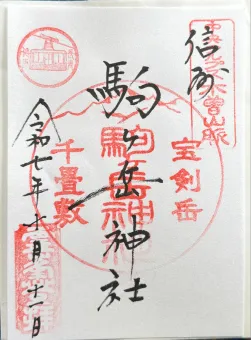 中央アルプス木曽山脈
信州
宝剣岳
駒ヶ岳神社
千畳敷
令和七年十月十一日